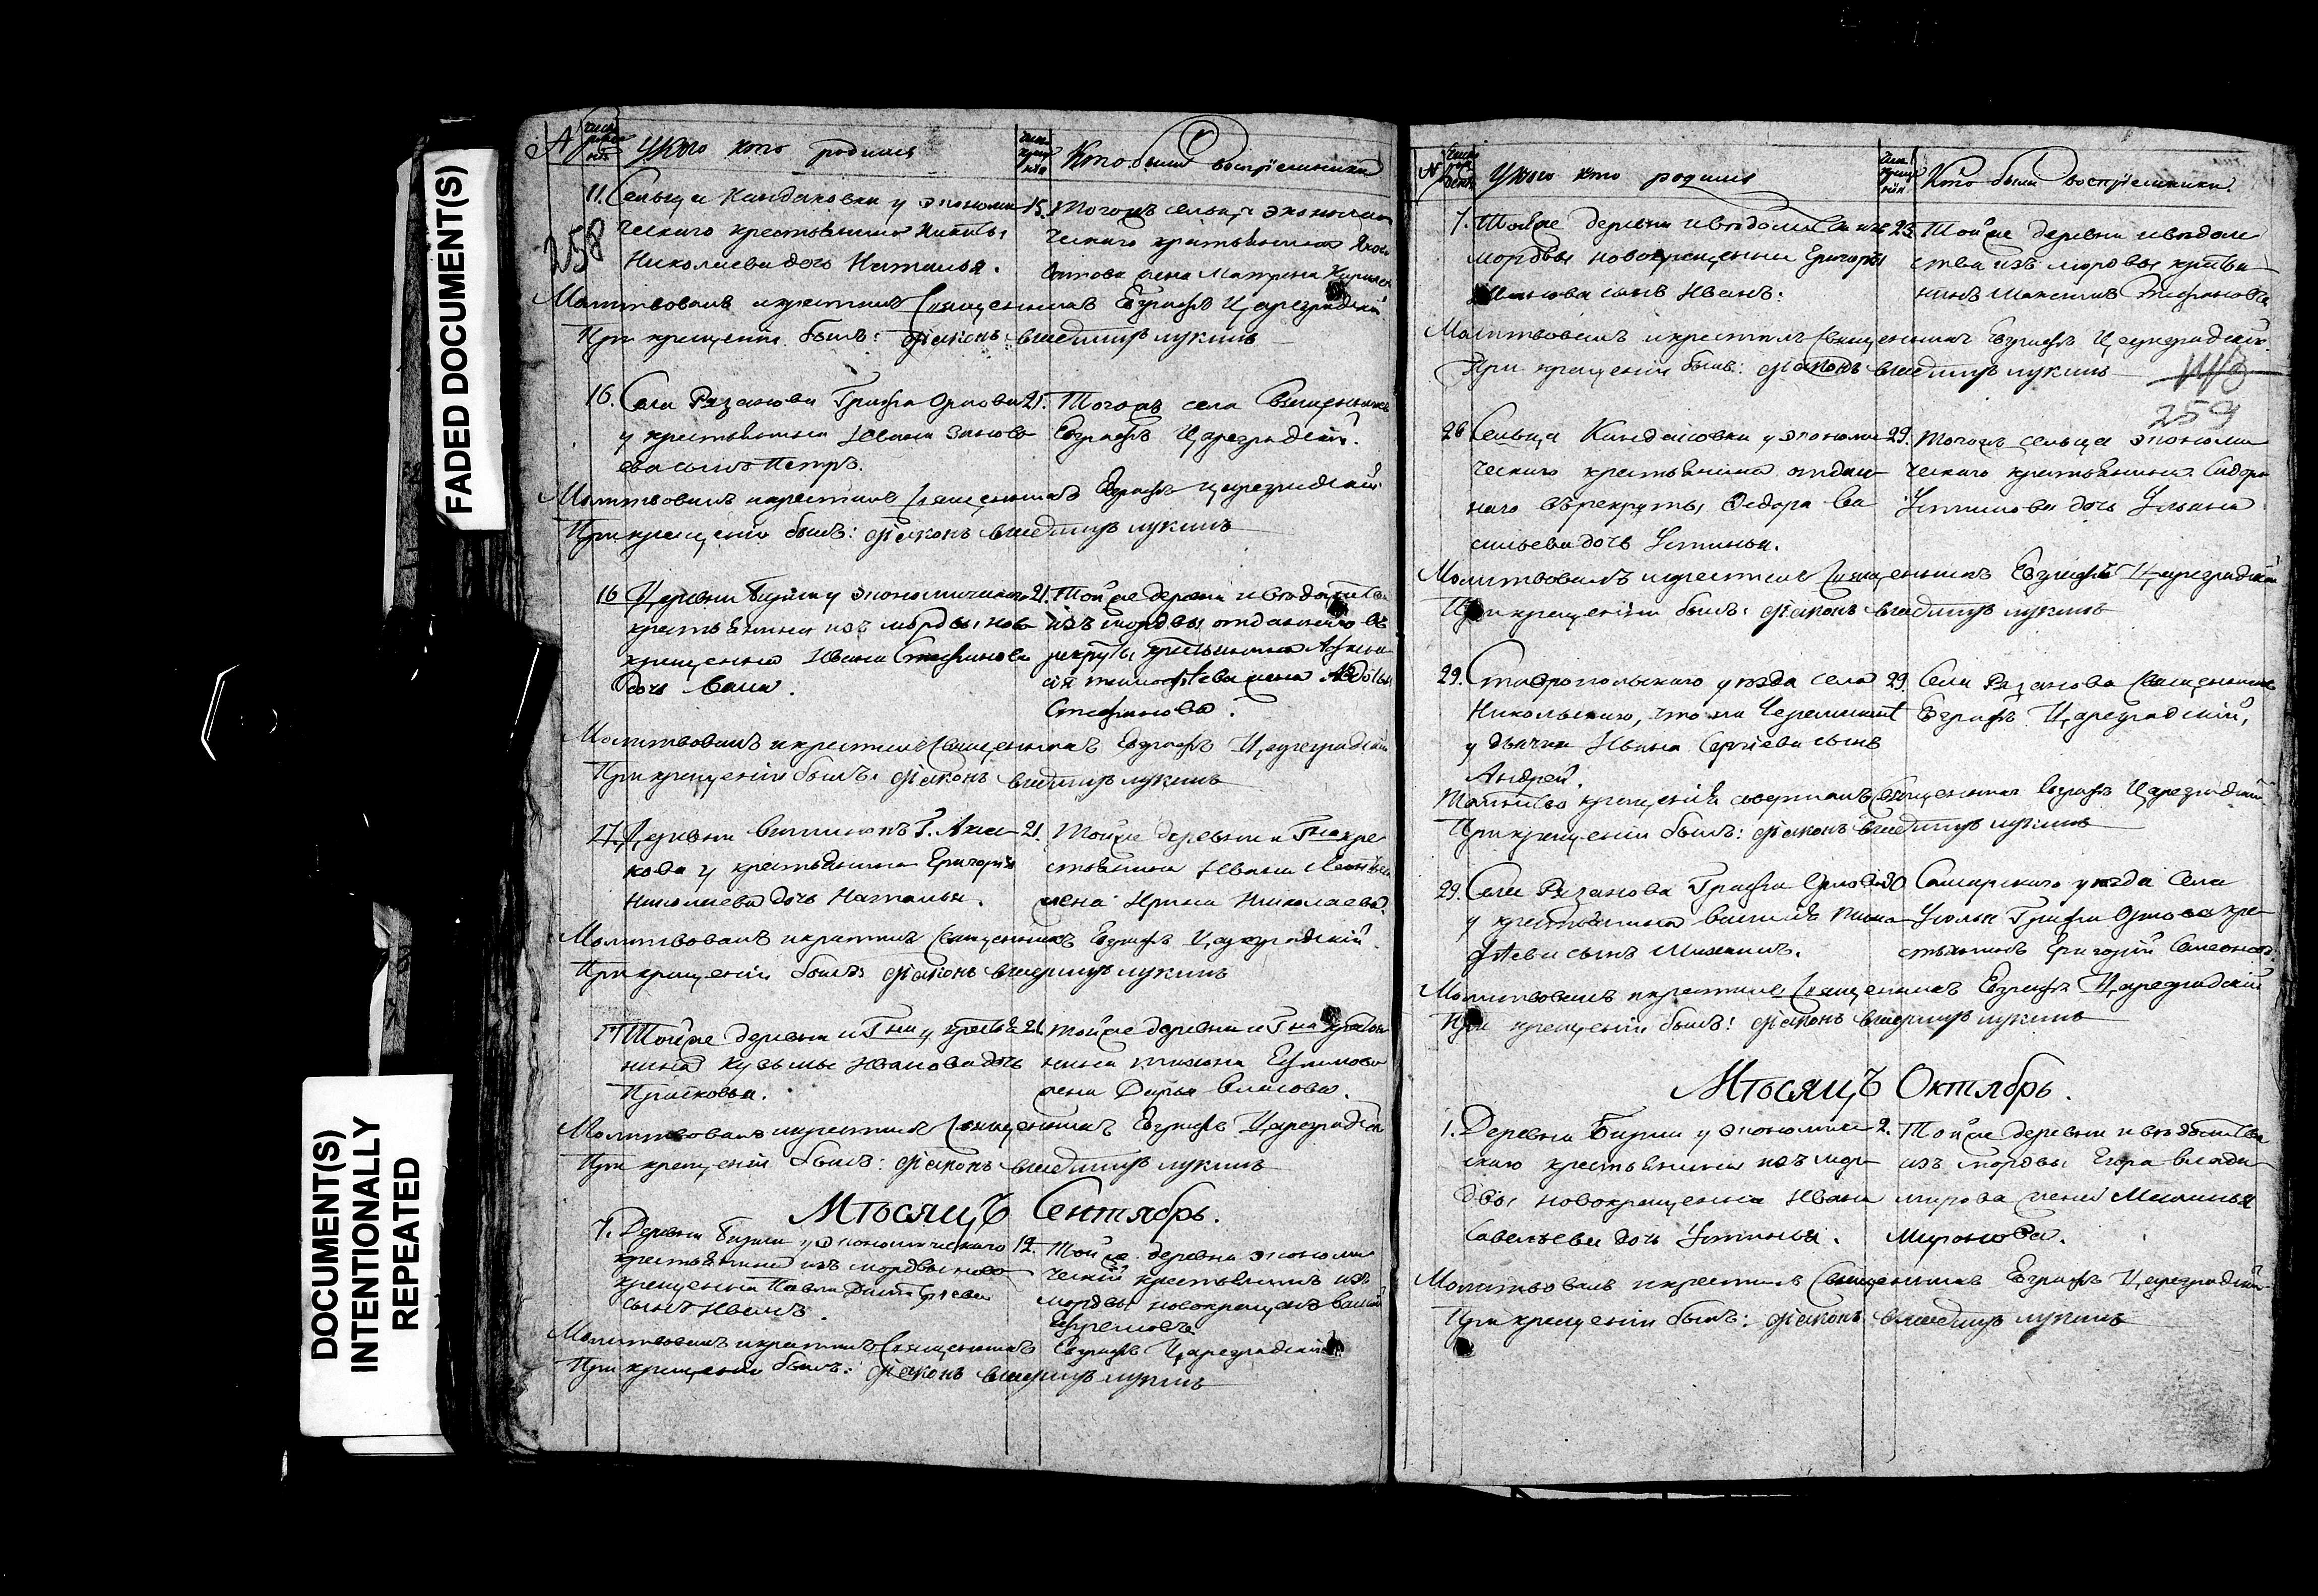 FADED DOCUMENT(S)
DOCUMENT(S)
INTENTIONALLY
REPEATED
У кого кто родился
Кто были воспрiемники
258
11. Сельца Кандаковки у экономи
ческаго крестьянина Никиты
Николаева дочь Наталья.
15. Тогожъ сельца экономи
ческаго крестьянина
жена Матрена
Молитвовалъ и крестилъ Священникъ Евграфъ Цареградскiй
При крещенiи былъ: дiаконъ Владимiръ Лукинъ
16. Села Рязанова Графа Орлова
у крестьянина Ивана
сынъ Петръ.
21. Тогожъ села Священникъ
Евграфъ Цареградскiй.
Молитвовалъ и крестилъ Священникъ Евграфъ Цареградскiй
При крещенiи былъ: дiаконъ Владимiръ Лукинъ
16 Деревни Бирли у экономическаго
крестьянина изъ мордвы ново
крещенна Ивана Стефанова
дочь
21. Тойже деревни и вѣдомства
изъ мордвы отданнаго въ
рекруты крестьянина
жена Авдотья
Стефанова.
Молитвовалъ и крестилъ Священникъ Евграфъ Цареградскiй
При крещенiи былъ: дiаконъ Владимiръ Лукинъ
17. Деревни
у крестьянина Григорiя
Николаева дочь Наталья.
21. Тойже деревни и Гна кре
стьянина Ивана
жена Ирина Николаева.
Молитвовалъ и крестилъ Священникъ Евграфъ Цареградскiй
При крещенiи былъ: дiаконъ Владимiръ Лукинъ
17 Тойже деревни и Гна у крестья
нина Кузьмы Иванова дочь
Прасковья.
21. Тойже деревни и Гна крестья
нина
жена Дарья Власова.
Молитвовалъ и крестилъ Священникъ Евграфъ Цареградскiй
При крещенiи былъ: дiаконъ Владимiръ Лукинъ
Мѣсяцъ Сентябрь.
7. Деревни Бирли у экономическаго
крестьянина изъ мордвы ново
крещенна Павла
сынъ Иванъ.
12. Тойже деревни экономи
ческiй крестьянинъ изъ
мордвы новокрещенъ
Ефремовъ
Молитвовалъ и крестилъ Священникъ Евграфъ Цареградскiй
При крещенiи былъ: дiаконъ Владимiръ Лукинъ
У кого кто родился
Кто были воспрiемники.
7. Тойже деревни и вѣдомства изъ
мордвы новокрещенна Григорья
сынъ Иванъ.
23. Тойже деревни и вѣдом
ства изъ мордвы крестья
нинъ Максимъ Стефановъ
Молитвовалъ и крестилъ Священникъ Евграфъ Цареградскiй.
При крещенiи былъ: дiаконъ Владимiръ Лукинъ
259
26 Сельца Кандаковки у экономи
ческаго крестьянина отдан
наго въ рекруты Федора Ва
сильева дочь Устинья.
29. Тогожъ сельца экономи
ческаго крестьянина Сидора
Устинова дочь Ульяна
Молитвовалъ и крестилъ Священникъ Евграфъ Цареградскiй
При крещенiи былъ: дiаконъ Владимiръ Лукинъ
29. Ставропольскаго уѣзда села
Никольскаго, что на Черемшанѣ
у дьячка Ивана Сергiева сынъ
Андрей.
29. Села Рязанова Священникъ
Евграфъ Цареградскiй,
Таинство крещенiя совершалъ Священникъ Евграфъ Цареградскiй
При крещенiи былъ: дiаконъ Владимiръ Лукинъ
29. Села Рязанова Графа Орлова
у крестьянина Василья Тимо
фѣева сынъ Михаилъ.
30 Самарскаго уѣзда Села
Усолья Графа Орлова кре
стьянинъ Григорiй Семеновъ.
Молитвовалъ и крестилъ Священникъ Евграфъ Цареградскiй
При крещенiи былъ: дiаконъ Владимiръ Лукинъ
Мѣсяцъ Октябрь.
1. Деревни Бирли у экономиче
скаго крестьянина изъ мор
двы новокрещенна Ивана
Савельева дочь Устинья.
2. Тойже деревни и вѣдомства
изъ мордвы Егора Влади
мирова жена Меланья
Миронова.
Молитвовалъ и крестилъ Священникъ Евграфъ Цареградскiй
При крещенiи былъ: дiаконъ Владимiръ Лукинъ